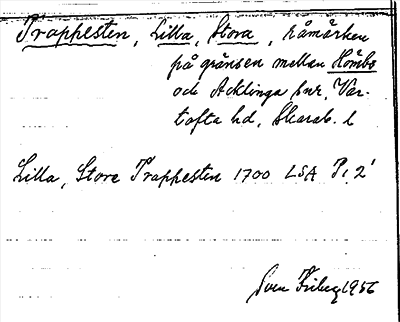 Trappesten, Lilla, Stora, råmärken
på gränsen mellan Hömbs
och Acklinga snr, Var-
tofta hd, Skarab. l
Lilla, Store Trappesten 1700 LSA P1 2¹
Sven Friberg 1956